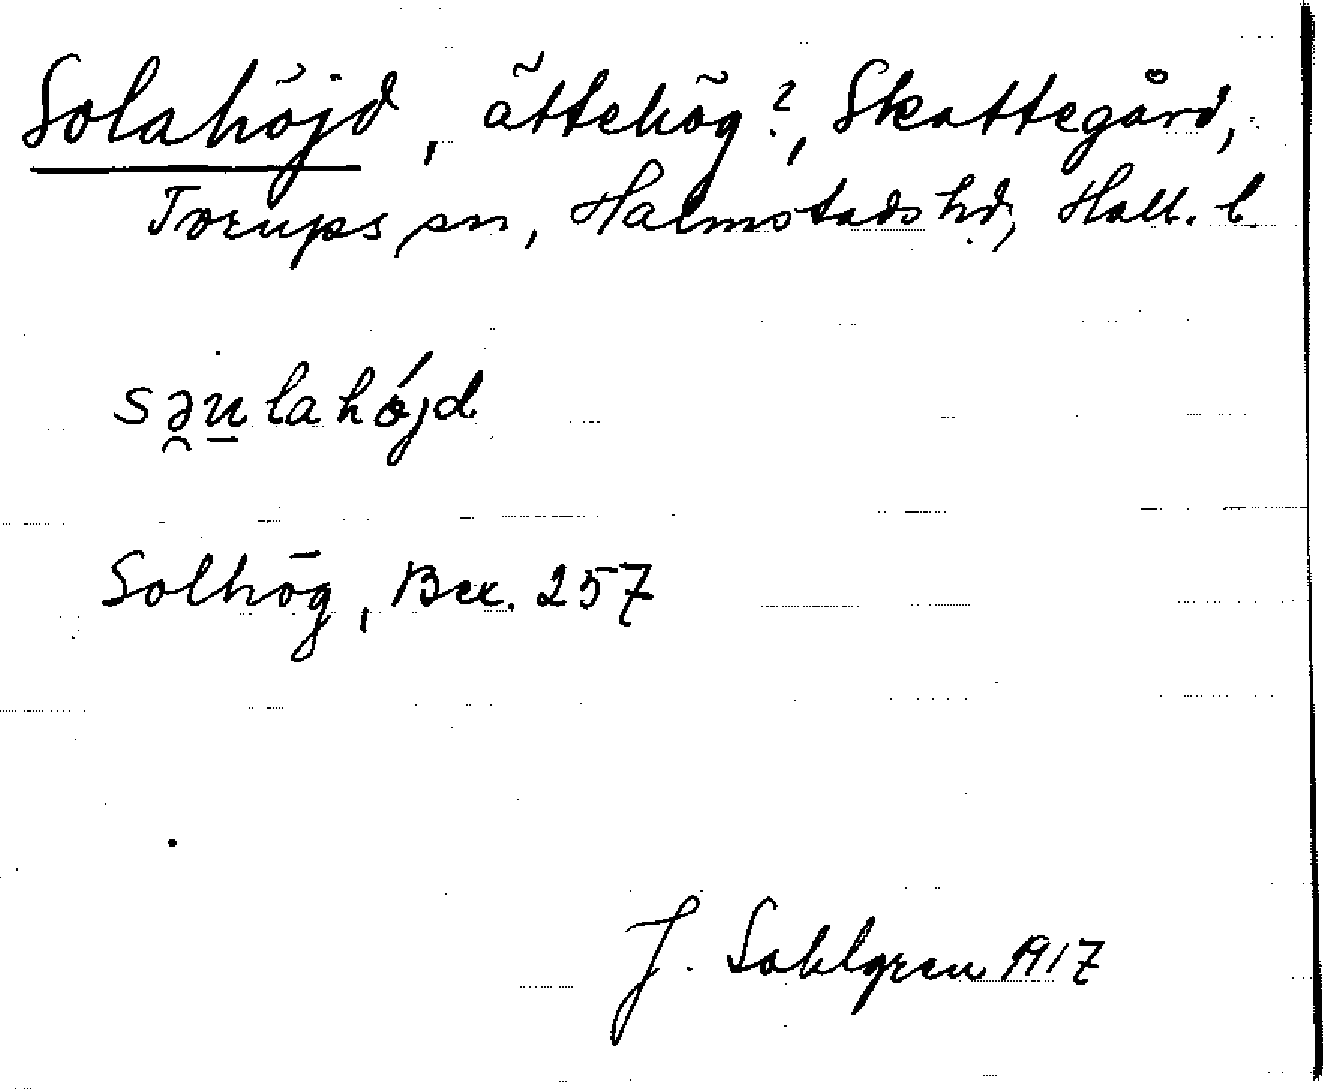 Solahöjd, ättehög?, Skattegård,
Torups sn, Halmstads hd, Hall. l
sə̯u̱lahǿjd
Solhög, Ber. 257
J. Sahlgren 1917